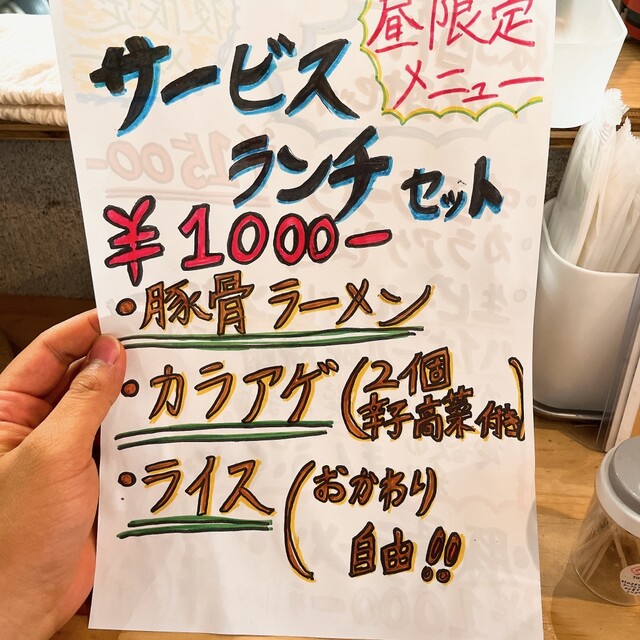 昼限定
メニュー
サービス
ランチ セット
¥1000-
・豚骨 ラーメン
・カラアゲ(2個
辛子高菜 付き)
・ライス(おかわり
自由!!